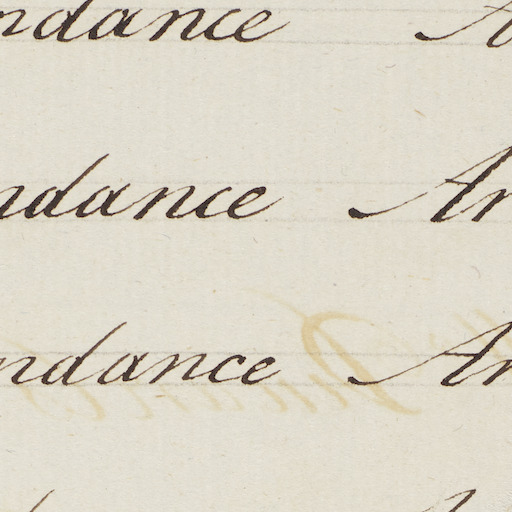 ndance A
ndance Ar
ndance Ar